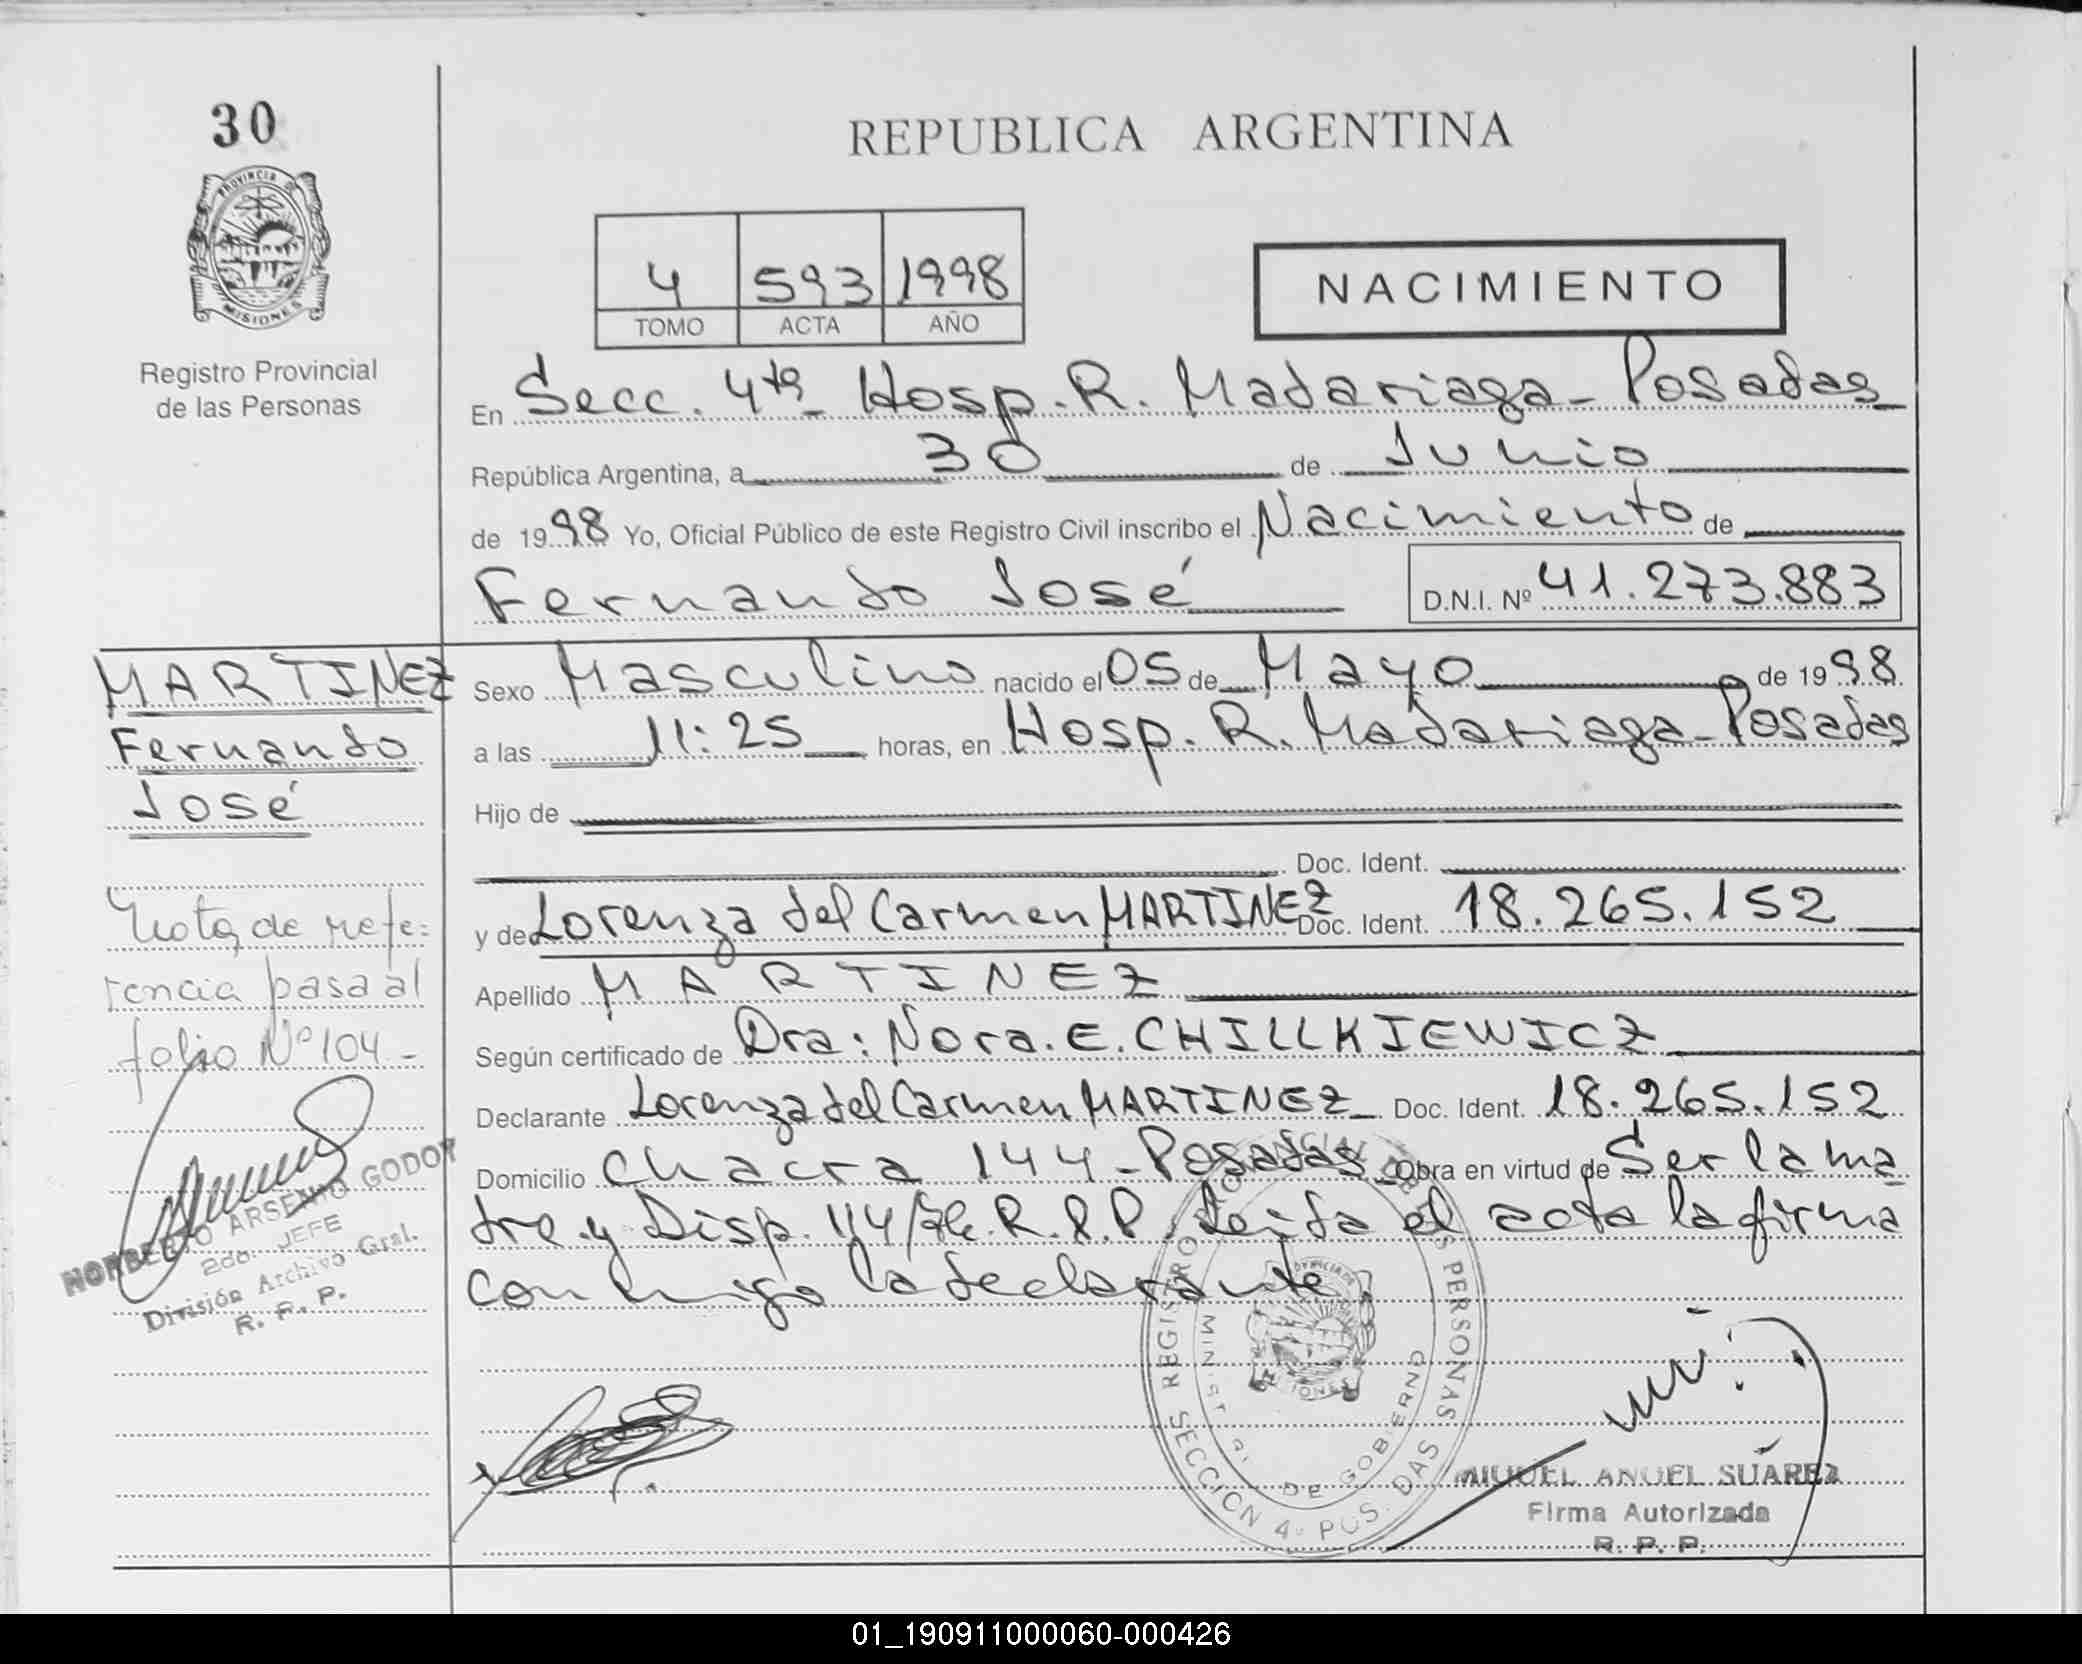 30
REPUBLICA ARGENTINA
PROVINCIA DE
MISIONES
Registro Provincial
de las Personas
4 593 1998
TOMO ACTA AÑO
NACIMIENTO
En Secc. 4ta Hosp. R. Madariaga - Posadas
República Argentina, a 30 de Junio
de 1998 Yo, Oficial Público de este Registro Civil inscribo el Nacimiento de
Fernando José D.N.I. Nº 41.273.883
MARTINEZ
Fernando
José
Sexo Masculino nacido el 05 de Mayo de 1998
a las 11:25 horas, en Hosp. R. Madariaga - Posadas
Hijo de
Doc. Ident.
y de Lorenza del Carmen MARTINEZ Doc. Ident. 18.265.152
Apellido MARTINEZ
Según certificado de Dra: Nora. E. CHILLKIEWICZ
Declarante Lorenza del Carmen MARTINEZ Doc. Ident. 18.265.152
Domicilio Chacra 144 - Posadas Obra en virtud de Ser la ma
dre y Disp. 114/ R.P.P. Leida el acta la firma
conmigo la declarante.
Nota de refe=
rencia pasa al
folio Nº 104 -
NORBERTO ARSENIO GODOY
2do. JEFE
División Archivo Gral.
R. P. P.
REGISTRO PROVINCIAL DE LAS PERSONAS
SECCION 4ª POSADAS
MINISTERIO DE GOBIERNO
MIGUEL ANGEL SUAREZ
Firma Autorizada
R. P. P.
01_190911000060-000426